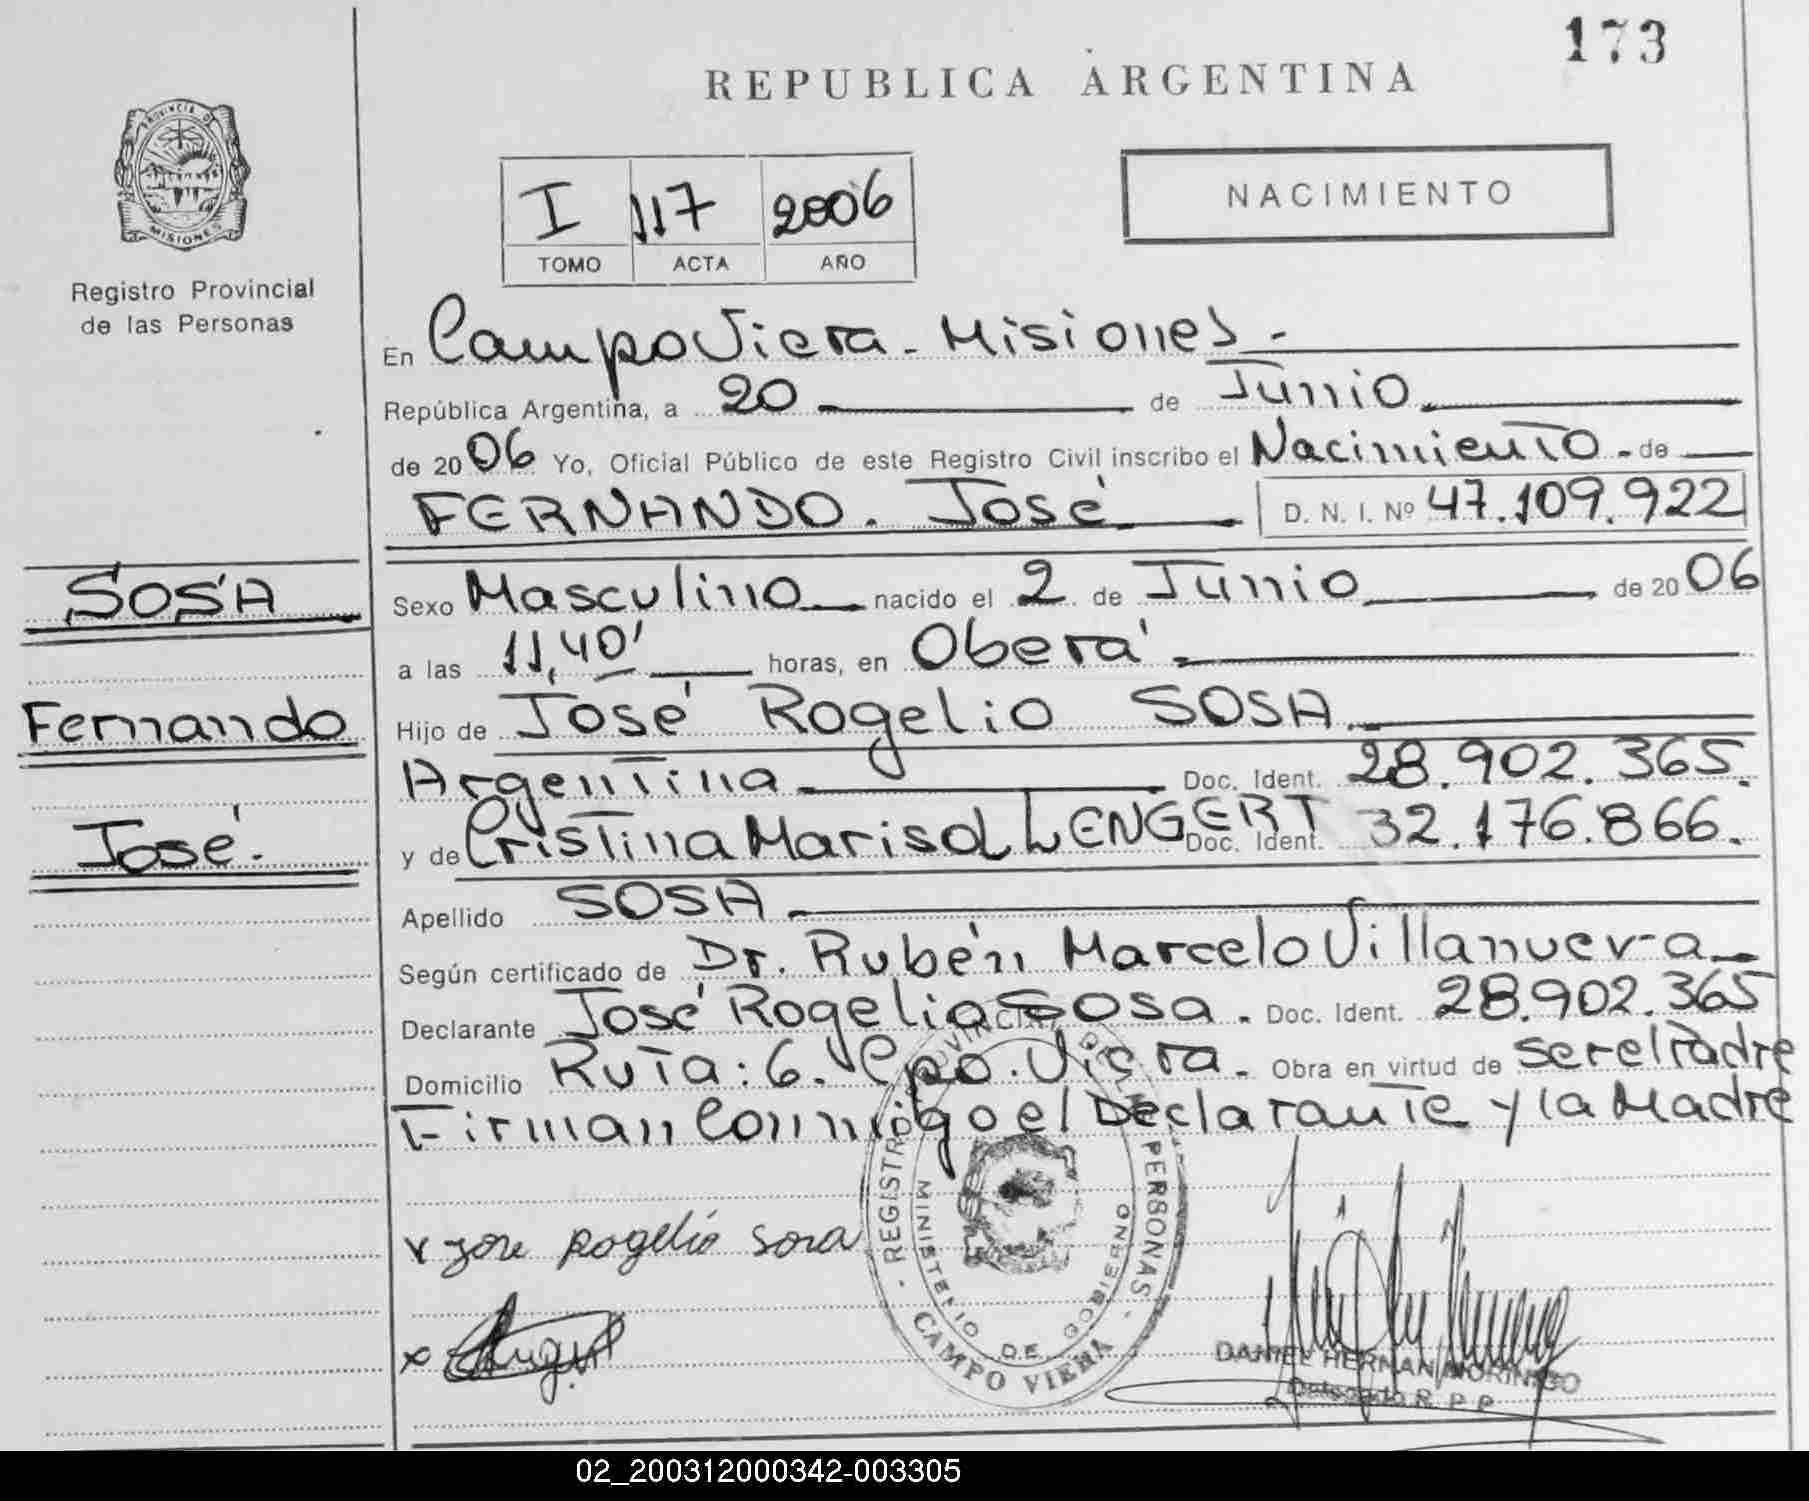 173
REPUBLICA ARGENTINA
PROVINCIA DE
MISIONES
Registro Provincial
de las Personas
I 117 2006
TOMO ACTA AÑO
NACIMIENTO
En Campo Viera - Misiones -
República Argentina, a 20 de Junio
de 2006 Yo, Oficial Público de este Registro Civil inscribo el Nacimiento - de
FERNANDO. José D. N. I. Nº 47.109.922
SOSA
Sexo Masculino nacido el 2 de Junio de 2006
a las 11,40' horas, en Oberá
Fernando
Hijo de José Rogelio SOSA
Argentina Doc. Ident. 28.902.365.
José.
y de Cristina Marisol LENGERT Doc. Ident. 32.176.866.
Apellido SOSA
Según certificado de Dr. Rubén Marcelo Villanueva
Declarante José Rogelio Sosa. Doc. Ident. 28.902.365
Domicilio Ruta: 6. Cpo. Viera. Obra en virtud de ser el Padre
Firman Conmigo el Declarante y la Madre
REGISTRO PROVINCIAL DE LAS PERSONAS
MINISTERIO DE GOBIERNO
CAMPO VIERA
x jose rogelio sosa
x
DANIEL HERNAN MORINIGO
Delegado R. P. P.
02_200312000342-003305